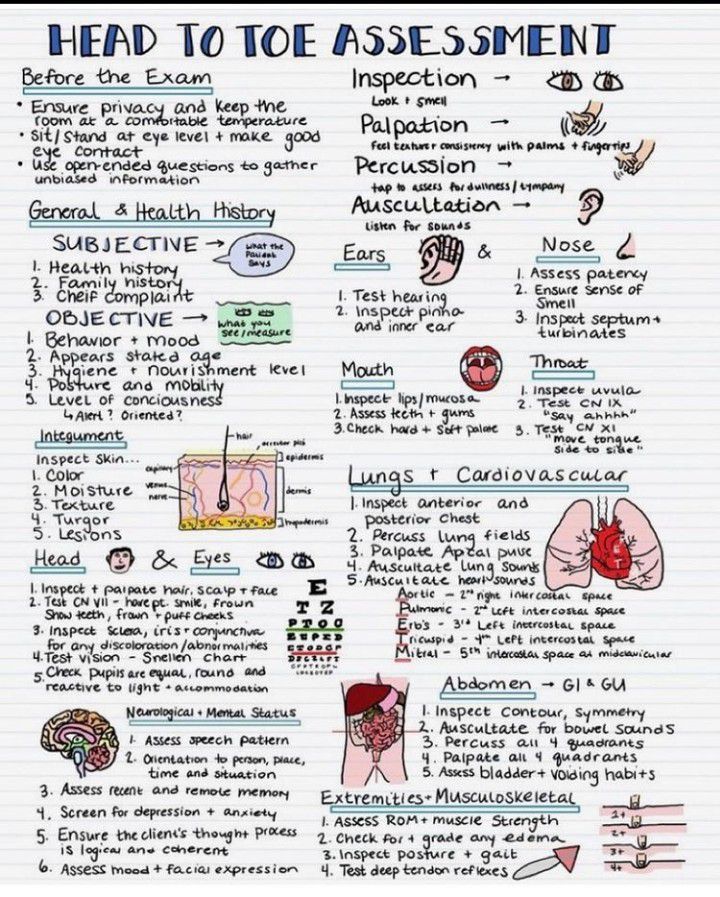 HEAD TO TOE ASSESSMENT
Before the Exam
• Ensure privacy and keep the
room at a comfortable temperature
• Sit/Stand at eye level + make good
eye contact
• use open-ended questions to gather
unbiased information
Inspection →
Look + smell
Palpation →
feel texture + consistency with palms + fingertips
Percussion →
tap to assess for dullness/tympany
Auscultation →
Listen for sounds
General & Health History
SUBJECTIVE →
what the
Patient
Says
1. Health history
2. Family history
3. Cheif complaint
OBJECTIVE →
what you
see/measure
1. Behavior + mood
2. Appears stated age
3. Hygiene + nourishment level
4. Posture and mobility
5. Level of conciousness
↳ Alert? Oriented?
Ears
&
Nose
1. Test hearing
2. Inspect pinna
and inner ear
1. Assess patency
2. Ensure sense of
Smell
3. Inspect septum +
turbinates
Mouth
1. Inspect lips/mucosa
2. Assess teeth + gums
3. Check hard + Soft palate
Throat
1. Inspect uvula
2. Test CN IX
"say ahhhh"
3. Test CN XI
"move tongue
side to side"
Integument
Inspect Skin...
1. Color
2. Moisture
3. Texture
4. Turgor
5. Lesions
hair
epidermis
capillary
venus
nerve
dermis
Head & Eyes
1. Inspect + palpate hair, scalp + face
2. Test CN VII - have pt. smile, frown
Show teeth, frown + puff cheeks
3. Inspect Sclera, iris + conjunctiva
for any discoloration/abnormalities
4. Test vision - Snellen Chart
5. Check pupils are equal, round and
reactive to light + accommodation
E
T Z
Lungs + Cardiovascular
1. Inspect anterior and
posterior chest
2. Percuss lung fields
3. Palpate Apical pulse
4. Auscultate lung Sounds
5. Auscultate heart sounds
Aortic - 2nd right intercostal space
Pulmonic - 2nd Left intercostal space
Erb's - 3rd Left intercostal space
Tricuspid - 4th Left intercostal Space
Mitral - 5th intercostal space at midclavicular
Neurological + Mental Status
1. Assess speech pattern
2. Orientation to person, place,
time and situation
3. Assess recent and remote memory
4. Screen for depression + anxiety
5. Ensure the client's thought process
is logical and coherent
6. Assess mood + facial expression
Abdomen → GI & GU
1. Inspect Contour, Symmetry
2. Auscultate for bowel Sounds
3. Percuss all 4 quadrants
4. Palpate all 4 quadrants
5. Assess bladder + voiding habits
Extremities + Musculoskeletal
1. Assess ROM + muscle Strength
2. Check for + grade any edema
3. Inspect posture + gait
4. Test deep tendon reflexes
1+
2+
3+
4+